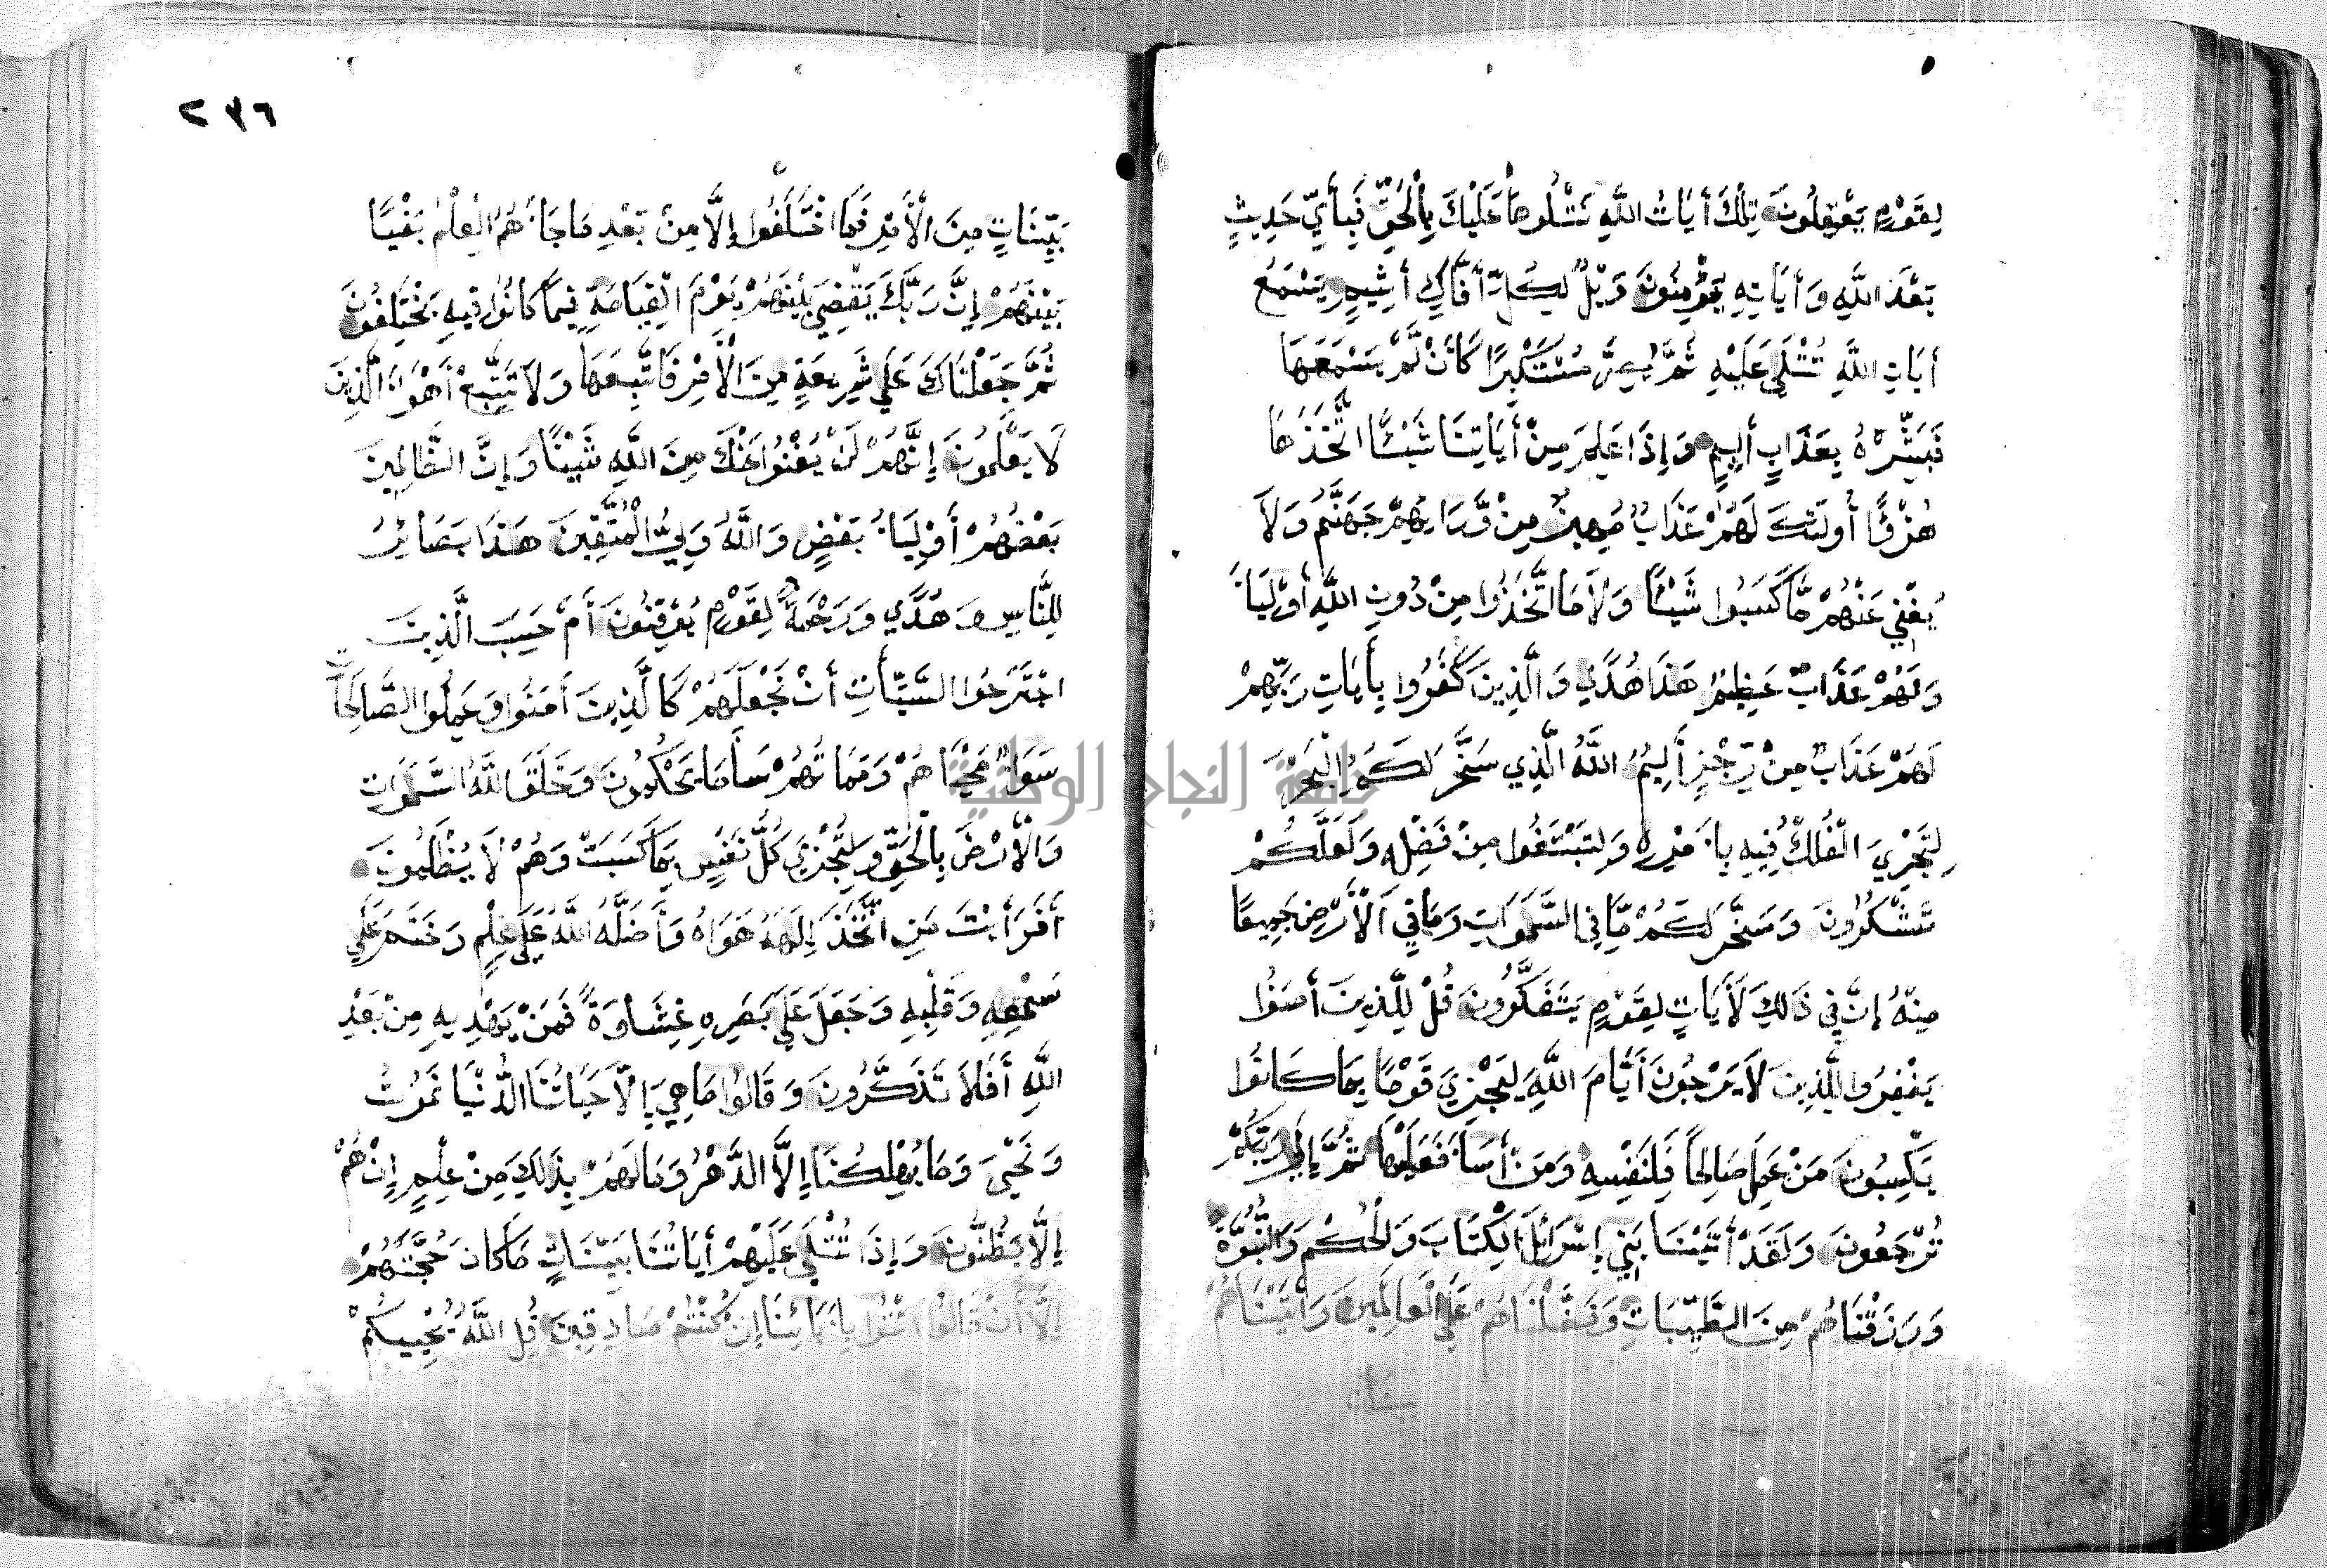 لِقَوْمٍ يَعْقِلُونَ تِلْكَ أيَاتُ اللَّهِ نَتْلُوهَا عَلَيْكَ بِالْحَقِّ فَبِأَيِّ حَدِيثٍ
بَعْدَ اللَّهِ وَأيَاتِهِ يُؤْمِنُونَ وَيْلٌ لِكُلِّ أَفَّاكٍ أَثِيمٍ يَسْمَعُ
أيَاتِ اللَّهِ تُتْلَى عَلَيْهِ ثُمَّ يُصِرُّ مُسْتَكْبِرًا كَأَنْ لَّمْ يَسْمَعْهَا
فَبَشِّرْهُ بِعَذَابٍ أَلِيمٍ وَإِذَا عَلِمَ مِنْ أيَاتِنَا شَيْئًا اتَّخَذَهَا
هُزُؤًا أُولَئِكَ لَهُمْ عَذَابٌ مُهِينٌ مِنْ وَّرَايِهِمْ جَهَنَّمُ وَلَا
يُغْنِي عَنْهُمْ مَّا كَسَبُوا شَيْئًا وَلَا مَا اتَّخَذُوا مِنْ دُونِ اللَّهِ أَوْلِيَاءَ
وَلَهُمْ عَذَابٌ عَظِيمٌ هَذَا هُدًى وَالَّذِينَ كَفَرُوا بِأَيَاتِ رَبِّهِمْ
لَهُمْ عَذَابٌ مِنْ رِّجْزٍ أَلِيمٌ اللَّهُ الَّذِي سَخَّرَ لَكُمُ الْبَحْرَ
لِتَجْرِيَ الْفُلْكُ فِيهِ بِأَمْرِهِ وَلِتَبْتَغُوا مِنْ فَضْلِهِ وَلَعَلَّكُمْ
تَشْكُرُونَ وَسَخَّرَ لَكُمْ مَّا فِي السَّمَوَاتِ وَمَا فِي الْأَرْضِ جَمِيعًا
مِنْهُ إِنَّ فِي ذَلِكَ لَأَيَاتٍ لِقَوْمٍ يَتَفَكَّرُونَ قُلْ لِلَّذِينَ أمَنُوا
يَغْفِرُوا لِلَّذِينَ لَا يَرْجُونَ أَيَّامَ اللَّهِ لِيَجْزِيَ قَوْمًا بِمَا كَانُوا
يَكْسِبُونَ مَنْ عَمِلَ صَالِحًا فَلِنَفْسِهِ وَمَنْ أَسَاءَ فَعَلَيْهَا ثُمَّ إِلَى رَبِّكُمْ
تُرْجَعُونَ وَلَقَدْ أتَيْنَا بَنِي إِسْرَائِلَ الْكِتَابَ وَالْحُكْمَ وَالنُّبُوَّةَ
وَرَزَقْنَاهُمْ مِنَ الطَّيِّبَاتِ وَفَضَّلْنَاهُمْ عَلَى الْعَالَمِينَ وَأتَيْنَاهُمْ
٢٧٦
بَيِّنَاتٍ مِنَ الْأَمْرِ فَمَا اخْتَلَفُوا إِلَّا مِنْ بَعْدِ مَا جَاءَهُمُ الْعِلْمُ بَغْيًا
بَيْنَهُمْ إِنَّ رَبَّكَ يَقْضِي بَيْنَهُمْ يَوْمَ الْقِيَامَةِ فِيمَا كَانُوا فِيهِ يَخْتَلِفُونَ
ثُمَّ جَعَلْنَاكَ عَلَى شَرِيعَةٍ مِنَ الْأَمْرِ فَاتَّبِعْهَا وَلَا تَتَّبِعْ أَهْوَاءَ الَّذِينَ
لَا يَعْلَمُونَ إِنَّهُمْ لَنْ يُغْنُوا عَنْكَ مِنَ اللَّهِ شَيْئًا وَإِنَّ الظَّالِمِينَ
بَعْضُهُمْ أَوْلِيَاءُ بَعْضٍ وَاللَّهُ وَلِيُّ الْمُتَّقِينَ هَذَا بَصَايِرُ
لِلنَّاسِ وَهُدًى وَرَحْمَةٌ لِقَوْمٍ يُوقِنُونَ أَمْ حَسِبَ الَّذِينَ
اجْتَرَحُوا السَّيِّأَتِ أَنْ نَجْعَلَهُمْ كَالَّذِينَ أمَنُوا وَعَمِلُوا الصَّالِحَاتِ
سَوَاءً مَحْيَاهُمْ وَمَمَاتُهُمْ سَاءَ مَا يَحْكُمُونَ وَخَلَقَ اللَّهُ السَّمَوَاتِ
وَالْأَرْضَ بِالْحَقِّ وَلِتُجْزَى كُلُّ نَفْسٍ بِمَا كَسَبَتْ وَهُمْ لَا يُظْلَمُونَ
أَفَرَأَيْتَ مَنِ اتَّخَذَ إِلَهَهُ هَوَاهُ وَأَضَلَّهُ اللَّهُ عَلَى عِلْمٍ وَخَتَمَ عَلَى
سَمْعِهِ وَقَلْبِهِ وَجَعَلَ عَلَى بَصَرِهِ غِشَاوَةً فَمَنْ يَهْدِيهِ مِنْ بَعْدِ
اللَّهِ أَفَلَا تَذَكَّرُونَ وَقَالُوا مَا هِيَ إِلَّا حَيَاتُنَا الدُّنْيَا نَمُوتُ
وَنَحْيَى وَمَا يُهْلِكُنَا إِلَّا الدَّهْرُ وَمَا لَهُمْ بِذَلِكَ مِنْ عِلْمٍ إِنْ هُمْ
إِلَّا يَظُنُّونَ وَإِذَا تُتْلَى عَلَيْهِمْ أيَاتُنَا بَيِّنَاتٍ مَا كَانَ حُجَّتَهُمْ
إِلَّا أَنْ قَالُوا ائْتُوا بِأَبَائِنَا إِنْ كُنْتُمْ صَادِقِينَ قُلِ اللَّهُ يُحْيِيكُمْ
جامعة النجاح الوطنية